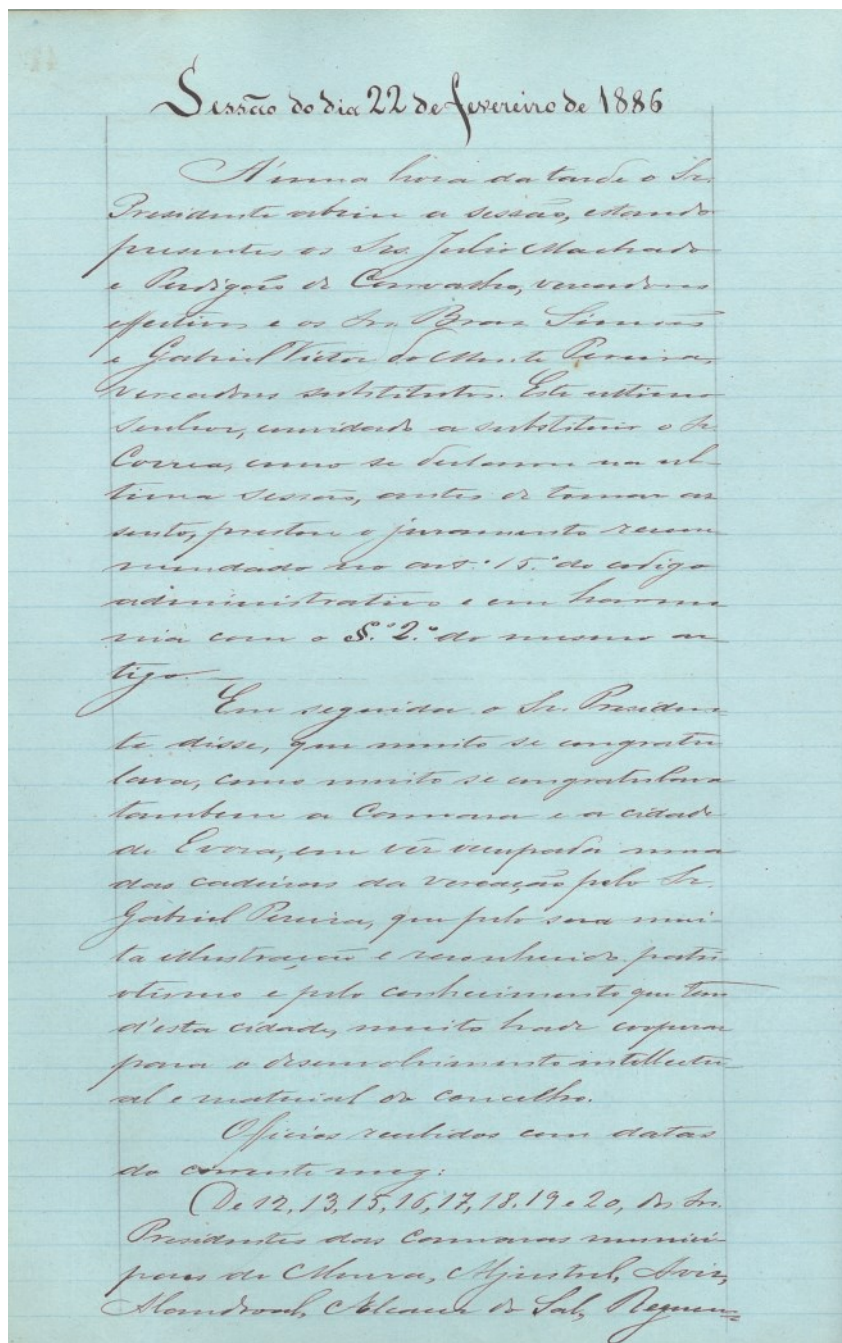 Sessão do dia 22 de fevereiro de 1886
Á uma hora da tarde o Sr.
Presidente abriu a sessão, estando
presentes os Srs. Julio Machado
e Perdigão de Carvalho, vereadores
effectivos e os Srs. Braz Simões
e Gabriel Victor do Monte Pereira,
vereadores substitutos. Este ultimo
senhor, convidado a substituir o Sr.
Correa, como se declarou na ul-
tima sessão, antes de tomar as
sento, prestou o juramento recom
mendado no art.º 15.º do codigo
administrativo e em harmo
nia com o §.º 2.º do mesmo ar
tigo.
Em seguida o Sr. Presiden-
te disse, que muito se congratu
lava, como muito se congratulava
tambem a Camara e a cidade
de Evora, em vêr occupada uma
das cadeiras da vereação pelo Sr.
Gabriel Pereira, que pela sua mui-
ta illustração e reconhecido patri
otismo e pelo conhecimento que tem
d'esta cidade, muito hade cooperar
para o desenvolvimento intellectu-
al e material do concelho.
Officios recebidos com datas
do corrente mez:
De 12, 13, 15, 16, 17, 18, 19 e 20, dos Srs.
Presidentes das Camaras munici
paes de Moura, Aljustrel, Aviz,
Alandroal, Alcacer do Sal, Reguen=